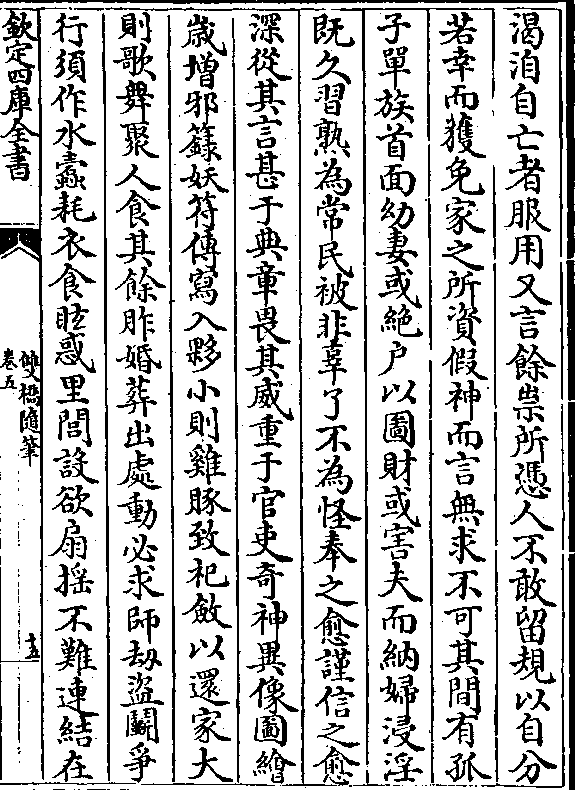 渴洎自亡者服用又言餘祟所憑人不敢留規以自分
若幸而獲免家之所資假神而言無求不可其間有孤
子單族首面幼妻或絕户以圖財或害夫而納婦浸淫
既久習熟為常民被非辜了不為怪奉之愈謹信之愈
深從其言甚于典章畏其威重于官吏奇神異像圖繪
歳增邪籙妖符傳寫入夥小則雞豚致祀斂以還家大
則歌舞聚人食其餘胙婚葬出處動必求師劫盜鬭爭
行須作水蠱耗衣食眩惑里閭設欲扇揺不難連結在
欽定四庫全書
雙橋隨筆
卷五
十五